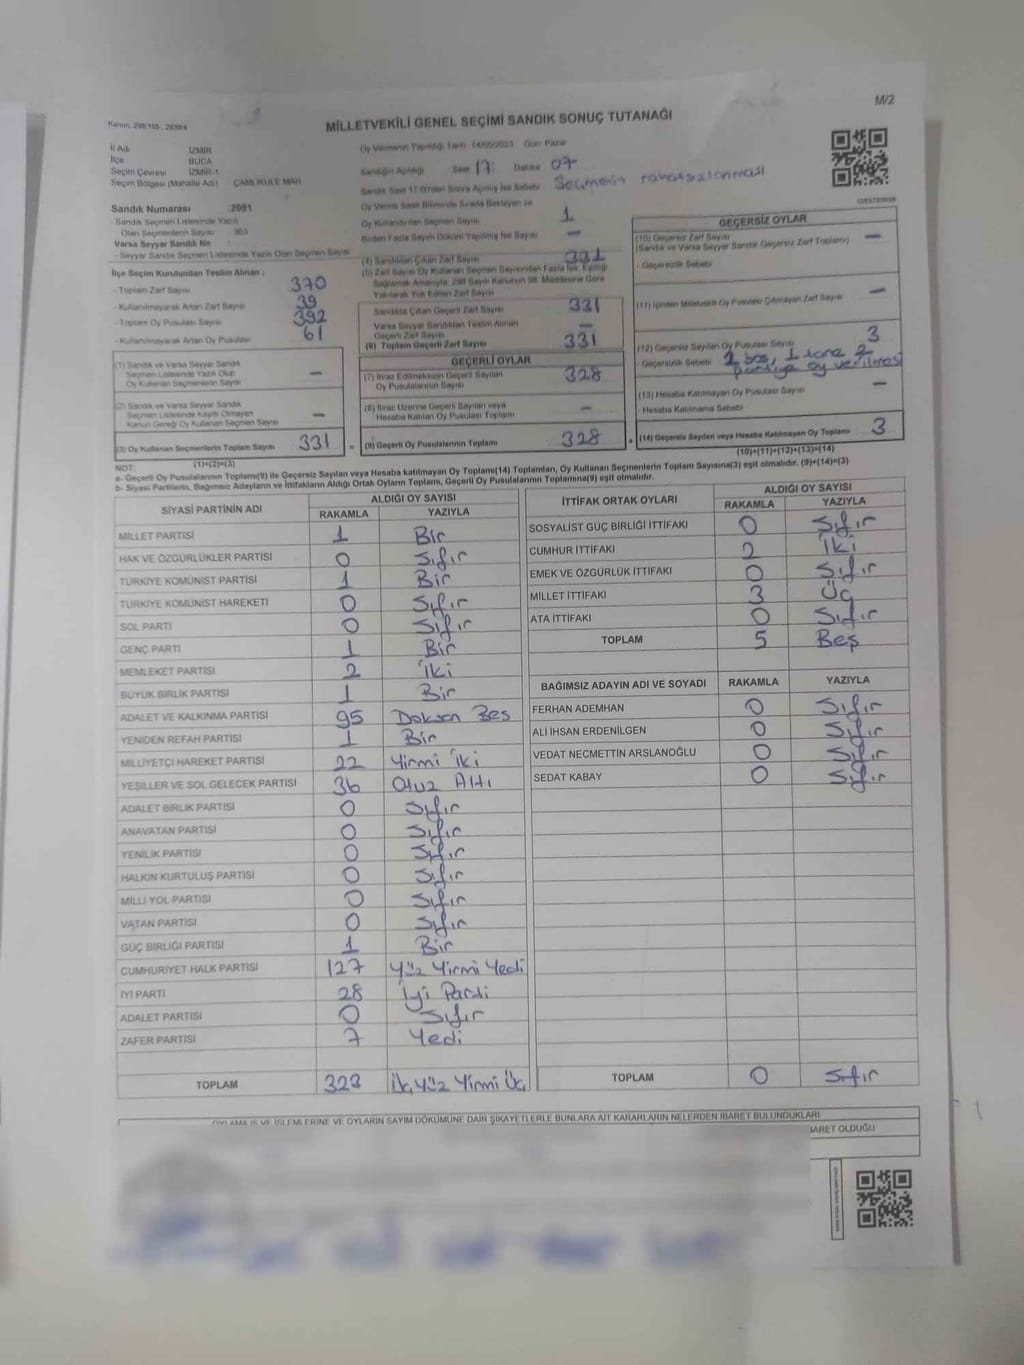 M/2
Kanun: 298/105 , 2839/4
MİLLETVEKİLİ GENEL SEÇİMİ SANDIK SONUÇ TUTANAĞI
İl Adı İZMİR
İlçe BUCA
Seçim Çevresi İZMİR-1
Seçim Bölgesi (Mahalle Adı) : ÇAMLIKULE MAH.
Oy Vermenin Yapıldığı Tarih 14/05/2023 Gün: Pazar
Sandığın Açıldığı Saat 17: Dakika 07
Sandık Saat 17:00'den Sonra Açılmış İse Sebebi Seçmenin rahatsızlanması
Oy Verme Saati Bitiminde Sırada Bekleyen ve
Oy Kullandırılan Seçmen Sayısı 1
Birden Fazla Sayım Döküm Yapılmış İse Sayısı —
Sandık Numarası : 2091
- Sandık Seçmen Listesinde Yazılı
Olan Seçmenlerin Sayısı
Varsa Seyyar Sandık No :
- Seyyar Sandık Seçmen Listesinde Yazılı Olan Seçmen Sayısı
İlçe Seçim Kurulundan Teslim Alınan :
- Toplam Zarf Sayısı 370
- Kullanılmayarak Artan Zarf Sayısı 39
- Toplam Oy Pusulası Sayısı 392
- Kullanılmayarak Artan Oy Pusulası 61
(1) Sandık ve Varsa Seyyar Sandık
Seçmen Listesinde Yazılı Olup
Oy Kullanan Seçmenlerin Sayısı —
(2) Sandık ve Varsa Seyyar Sandık
Seçmen Listesinde Kayıtlı Olmayan
Kanun Gereği Oy Kullanan Seçmen Sayısı —
(3) Oy Kullanan Seçmenlerin Toplam Sayısı 331
(1)+(2)=(3)
(4) Sandıktan Çıkan Zarf Sayısı 331
(5) Zarf Sayısı Oy Kullanan Seçmen Sayısından Fazla İse, Eşitliği
Sağlamak Amacıyla, 298 Sayılı Kanunun 98. Maddesine Göre
Yakılarak Yok Edilen Zarf Sayısı
Sandıkta Çıkan Geçerli Zarf Sayısı 331
Varsa Seyyar Sandıktan Teslim Alınan
Geçerli Zarf Sayısı —
(6) Toplam Geçerli Zarf Sayısı 331
GEÇERLİ OYLAR
(7) İtiraz Edilmeksizin Geçerli Sayılan
Oy Pusulalarının Sayısı 328
(8) İtiraz Üzerine Geçerli Sayılan veya
Hesaba Katılan Oy Pusulası Toplamı —
= (9) Geçerli Oy Pusulalarının Toplamı 328
GEÇERSİZ OYLAR
(10) Geçersiz Zarf Sayısı
(Sandık ve Varsa Seyyar Sandık Geçersiz Zarf Toplamı) —
- Geçersizlik Sebebi
(11) İçinden Milletvekili Oy Pusulası Çıkmayan Zarf Sayısı —
(12) Geçersiz Sayılan Oy Pusulası Sayısı 3
- Geçersizlik Sebebi 2 boş, 1 tane 2 partiye oy verilmesi
(13) Hesaba Katılmayan Oy Pusulası Sayısı —
- Hesaba Katılmama Sebebi
+ (14) Geçersiz Sayılan veya Hesaba Katılmayan Oy Toplamı 3
(10)+(11)+(12)+(13)=(14)
NOT:
a- Geçerli Oy Pusulalarının Toplamı(9) ile Geçersiz Sayılan veya Hesaba katılmayan Oy Toplamı(14) Toplamları, Oy Kullanan Seçmenlerin Toplam Sayısına(3) eşit olmalıdır. (9)+(14)=(3)
b- Siyasi Partilerin, Bağımsız Adayların ve İttifakların Aldığı Ortak Oyların Toplamı, Geçerli Oy Pusulalarının Toplamına(9) eşit olmalıdır.
SİYASİ PARTİNİN ADI ALDIĞI OY SAYISI
RAKAMLA YAZIYLA
MİLLET PARTİSİ 1 Bir
HAK VE ÖZGÜRLÜKLER PARTİSİ 0 Sıfır
TÜRKİYE KOMÜNİST PARTİSİ 1 Bir
TÜRKİYE KOMÜNİST HAREKETİ 0 Sıfır
SOL PARTİ 0 Sıfır
GENÇ PARTİ 1 Bir
MEMLEKET PARTİSİ 2 İki
BÜYÜK BİRLİK PARTİSİ 1 Bir
ADALET VE KALKINMA PARTİSİ 95 Doksan Beş
YENİDEN REFAH PARTİSİ 1 Bir
MİLLİYETÇİ HAREKET PARTİSİ 22 Yirmi İki
YEŞİLLER VE SOL GELECEK PARTİSİ 36 Otuz Altı
ADALET BİRLİK PARTİSİ 0 Sıfır
ANAVATAN PARTİSİ 0 Sıfır
YENİLİK PARTİSİ 0 Sıfır
HALKIN KURTULUŞ PARTİSİ 0 Sıfır
MİLLİ YOL PARTİSİ 0 Sıfır
VATAN PARTİSİ 0 Sıfır
GÜÇ BİRLİĞİ PARTİSİ 1 Bir
CUMHURİYET HALK PARTİSİ 127 Yüz Yirmi Yedi
İYİ PARTİ 28 İyi Parti
ADALET PARTİSİ 0 Sıfır
ZAFER PARTİSİ 7 Yedi
TOPLAM 323 Üç Yüz Yirmi Üç
İTTİFAK ORTAK OYLARI ALDIĞI OY SAYISI
RAKAMLA YAZIYLA
SOSYALİST GÜÇ BİRLİĞİ İTTİFAKI 0 Sıfır
CUMHUR İTTİFAKI 2 İki
EMEK VE ÖZGÜRLÜK İTTİFAKI 0 Sıfır
MİLLET İTTİFAKI 3 Üç
ATA İTTİFAKI 0 Sıfır
TOPLAM 5 Beş
BAĞIMSIZ ADAYIN ADI VE SOYADI RAKAMLA YAZIYLA
FERHAN ADEMHAN 0 Sıfır
ALİ İHSAN ERDENİLGEN 0 Sıfır
VEDAT NECMETTİN ARSLANOĞLU 0 Sıfır
SEDAT KABAY 0 Sıfır
TOPLAM 0 Sıfır
OYLAMA İŞ VE İŞLEMLERİNE VE OYLARIN SAYIM DÖKÜMÜNE DAİR ŞİKAYETLERLE BUNLARA AİT KARARLARIN NELERDEN İBARET BULUNDUKLARI
İBARET OLDUĞU